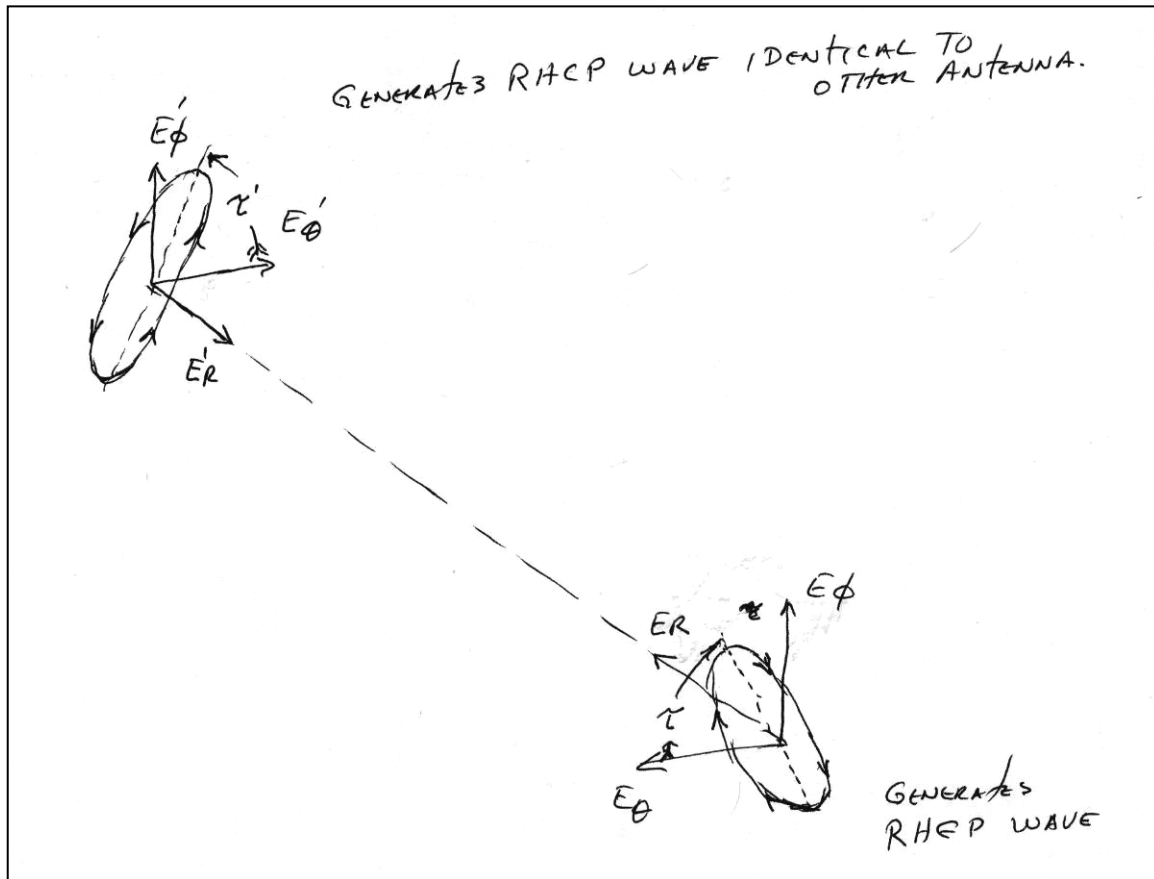 GENERATES RHCP WAVE IDENTICAL TO
OTHER ANTENNA.
E'ϕ
τ'
E'θ
E'R
Eϕ
ER
τ
Eθ
GENERATES
RHCP WAVE